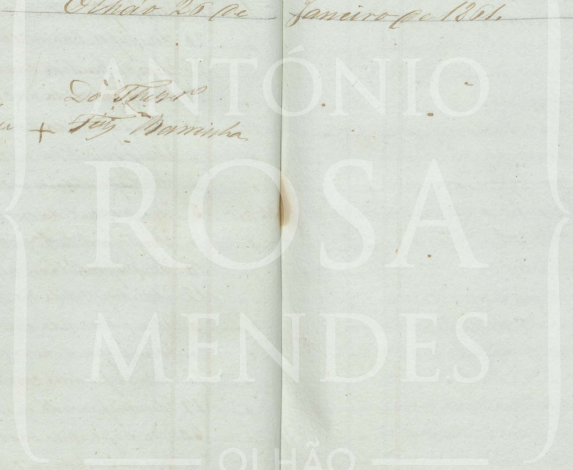 Olhão 25 de Janeiro de 1861.
Do Thezro
+ Barrinha
ANTÓNIO
ROSA
MENDES
OLHÃO